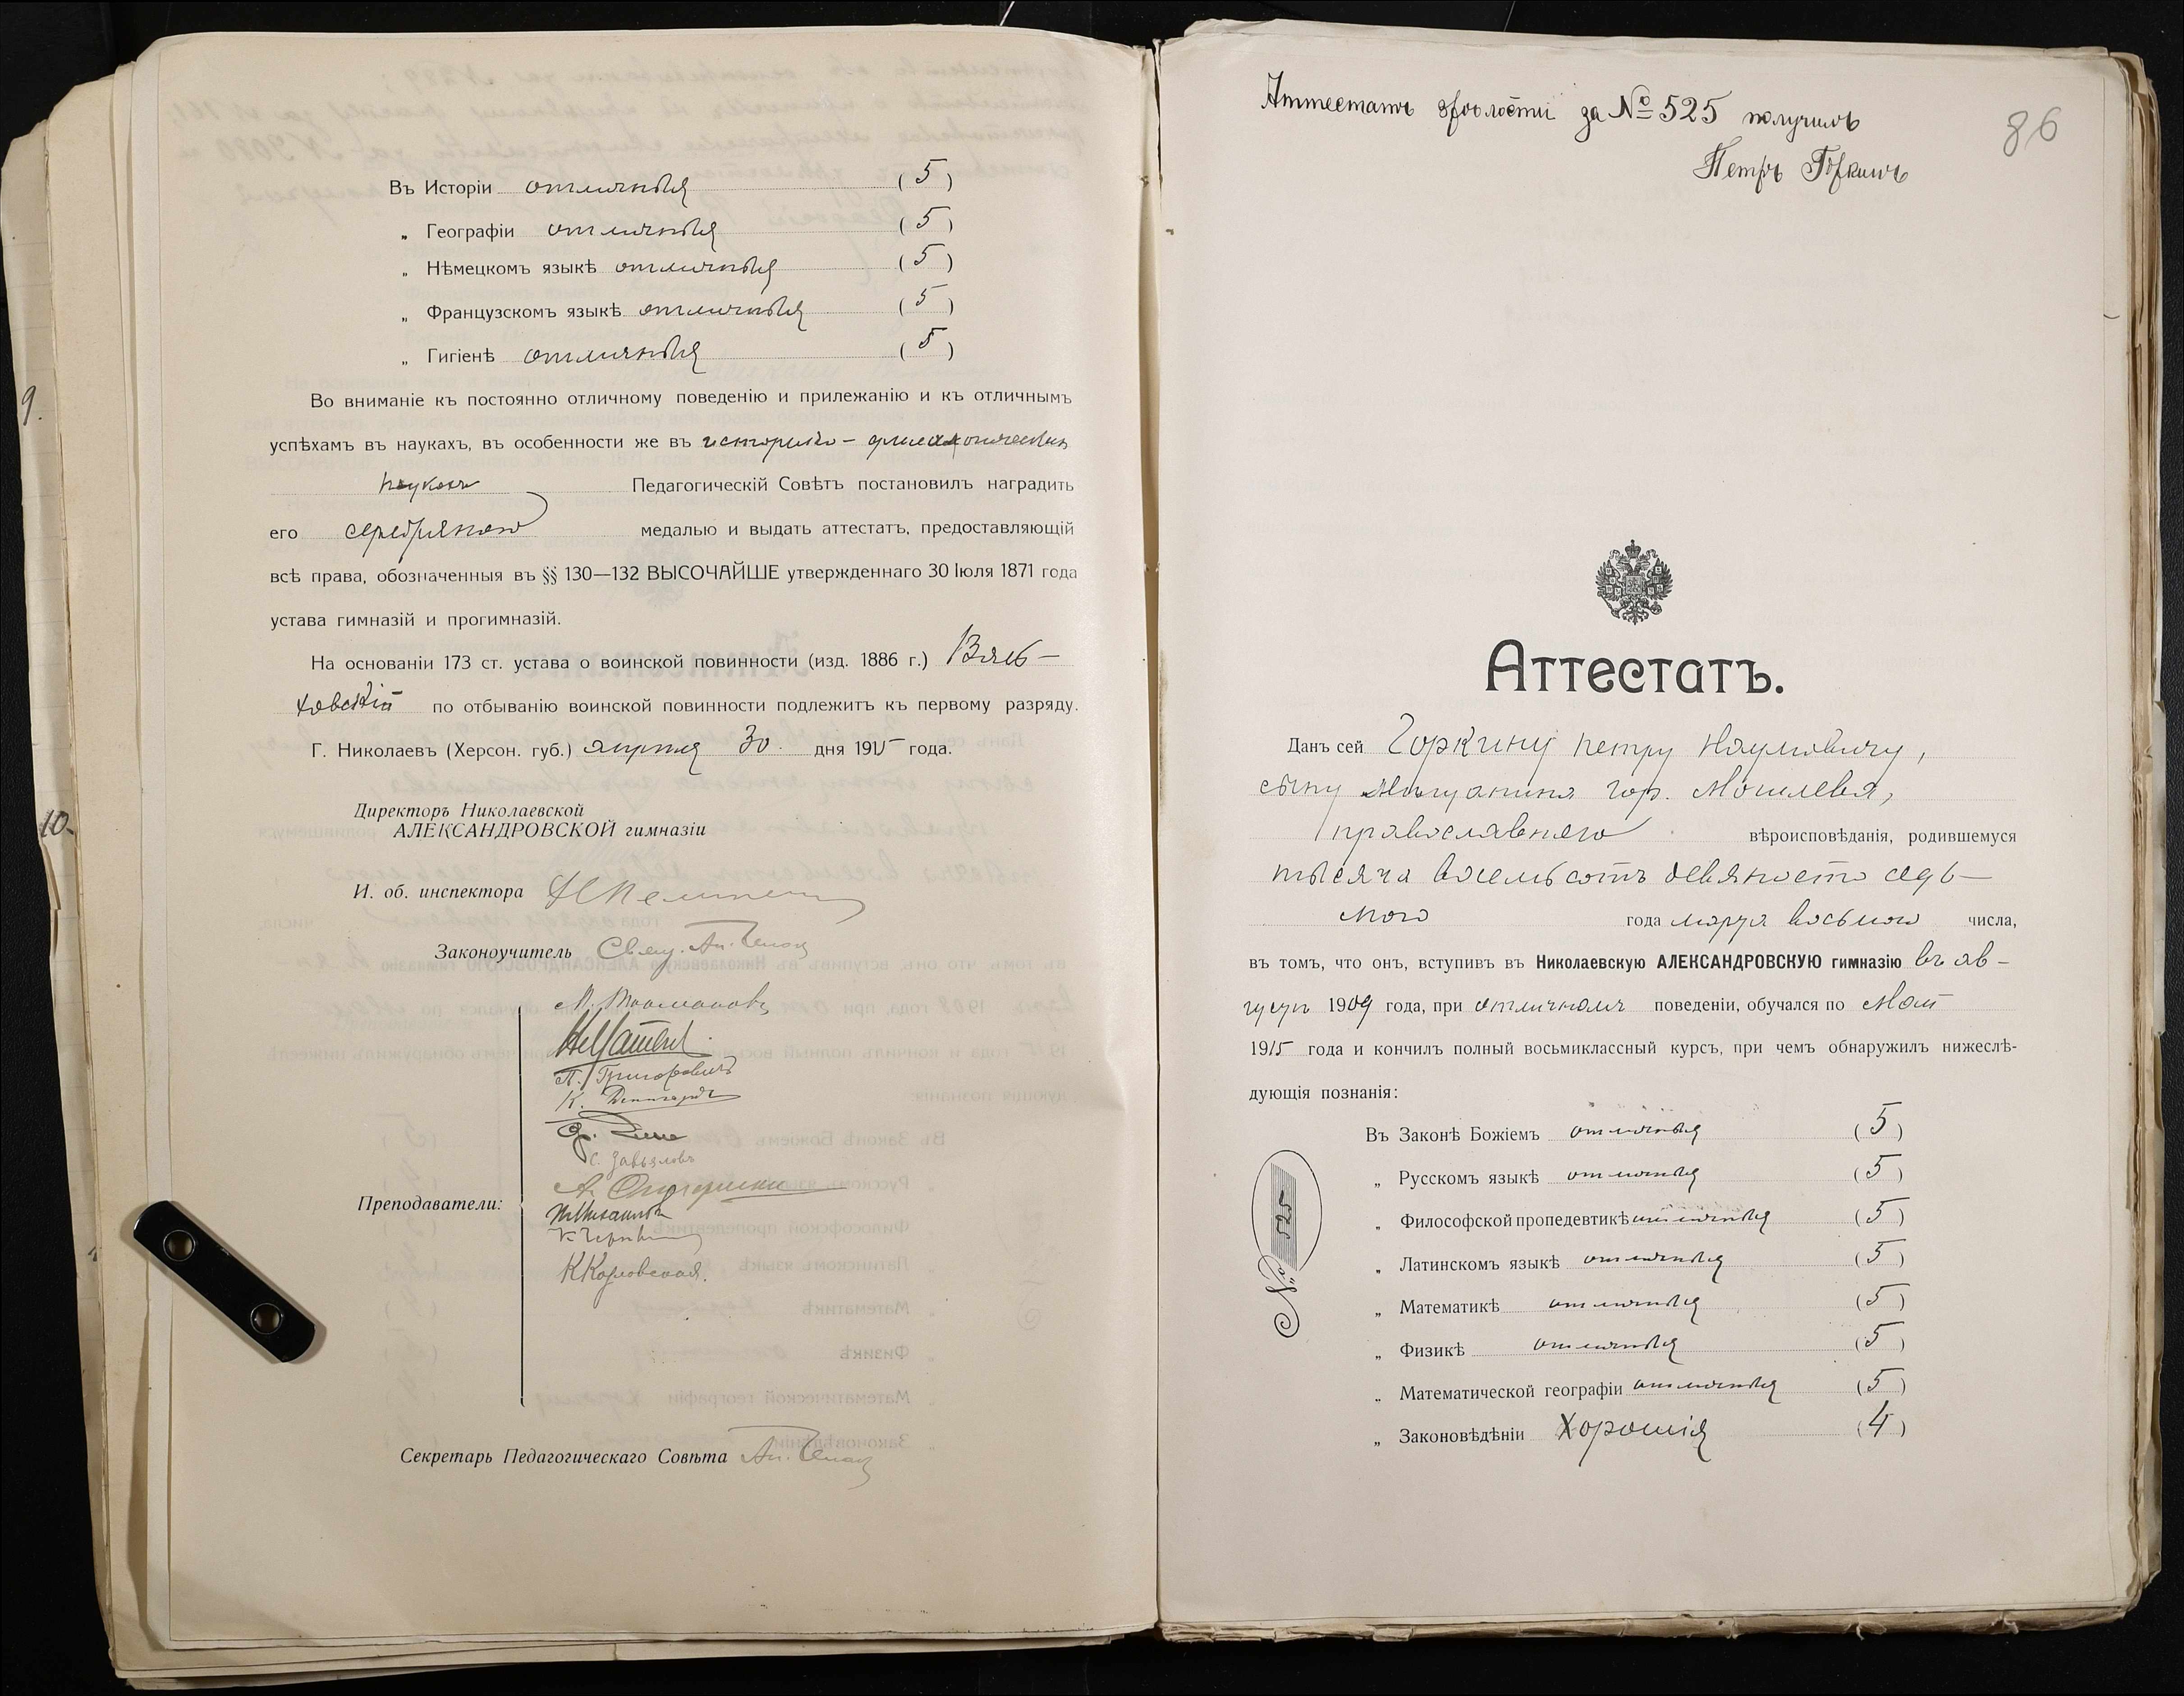 9.
10.
Въ Исторіи отличныя (5)
„ Географіи отличныя (5)
„ Нѣмецкомъ языкѣ отличныя (5)
„ Французскомъ языкѣ отличныя (5)
„ Гигіенѣ отличныя (5)
Во вниманіе къ постоянно отличному поведенію и прилежанію и къ отличнымъ
успѣхамъ въ наукахъ, въ особенности же въ историко-филологическихъ
наукахъ Педагогическій Совѣтъ постановилъ наградить
его серебряною медалью и выдать аттестатъ, предоставляющій
всѣ права, обозначенныя въ §§ 130—132 ВЫСОЧАЙШЕ утвержденнаго 30 Іюля 1871 года
устава гимназій и прогимназій.
На основаніи 173 ст. устава о воинской повинности (изд. 1886 г.)
по отбыванію воинской повинности подлежитъ къ первому разряду.
Г. Николаевъ (Херсон. губ.) апрѣля 30 дня 1915 года.
Директоръ Николаевской
АЛЕКСАНДРОВСКОЙ гимназіи
И. об. инспектора
Законоучитель Свящ.
П. Григоровичъ
С. Завьяловъ
Преподаватели:
Секретарь Педагогическаго Совѣта
Аттестатъ зрѣлости за № 525 получилъ
Петръ Горкинъ
86
Аттестатъ.
Данъ сей Горкину Петру Наумовичу,
сыну мѣщанина гор. Могилева,
православнаго вѣроисповѣданія, родившемуся
тысяча восемьсотъ девяносто седь-
мого года марта восьмого числа,
въ томъ, что онъ, вступивъ въ Николаевскую АЛЕКСАНДРОВСКУЮ гимназію въ ав-
густѣ 1909 года, при отличномъ поведеніи, обучался по май
1915 года и кончилъ полный восьмиклассный курсъ, при чемъ обнаружилъ нижеслѣ-
дующія познанія:
Въ Законѣ Божіемъ отличныя (5)
„ Русскомъ языкѣ отличныя (5)
„ Философской пропедевтикѣ отличныя (5)
„ Латинскомъ языкѣ отличныя (5)
„ Математикѣ отличныя (5)
„ Физикѣ отличныя (5)
„ Математической географіи отличныя (5)
„ Законовѣдѣніи хорошія (4)
№ 525